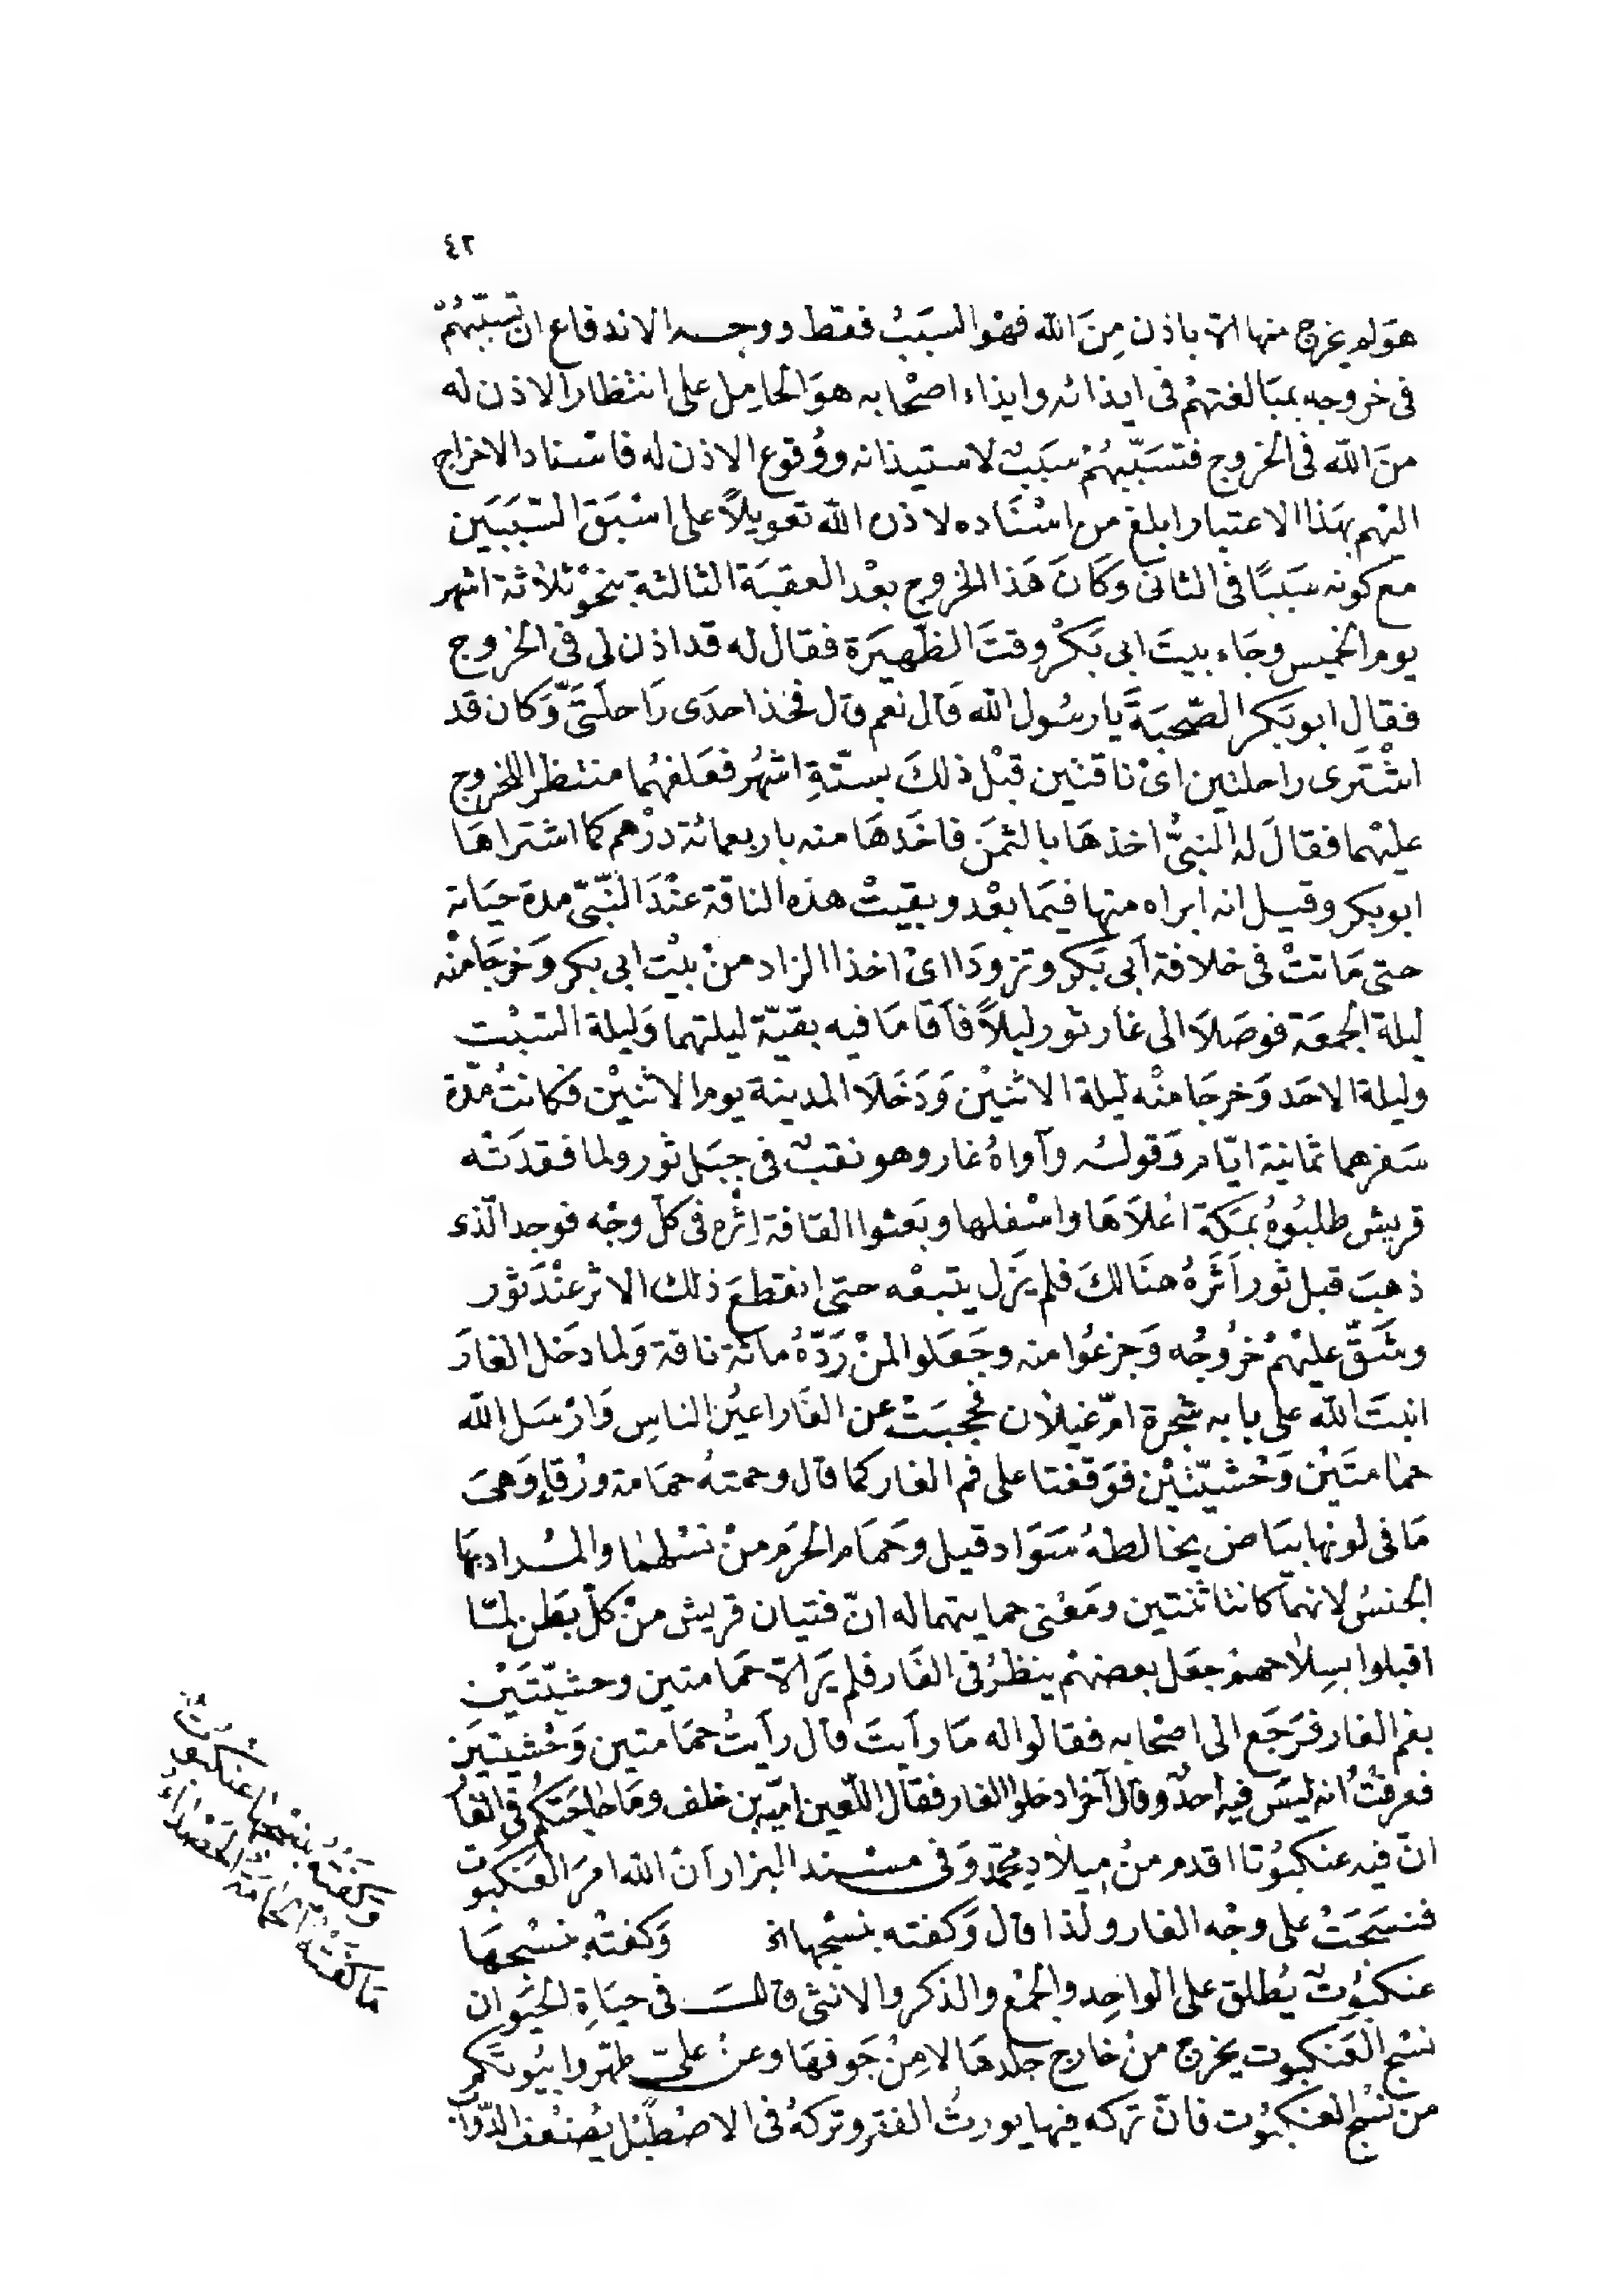 ٤٢
هوَلم يخرج منها الا باذن مِنَ الله فهوا السبَبُ فقط ووجه الاندفاع ان تسبّبهُمْ
فى خروجه بمبَالغتهمْ فى ايذائه وايذاء اصْحابه هوَ الحامِل على انتظار الاذن له
منَ الله فى الخروج فتسَبّبهُمْ سبَبٌ لاستيذانه ووُقوع الاذن له فاسْناد الاخراج
اليهم بهَذا الاعتبار ابلغ من اسْنَاده لاذن الله تعويلاً على اسْبَقَ السّبَبَين
مع كونه سَببًا فى الثانى وَكَانَ هَذا الخروج بعْد العقبَة الثالثة بنحْو ثلاثة اشهر
يوم الخميس وجَاء بيتَ ابى بَكرْ وقتَ الظهيَرة فقال له قد اذن لى فى الخروج
فقال ابو بَكر الصّحبَةَ يا رسُول الله قال نعم قال فخذ احدَى رَاحلَتَىَّ وَكان قد
اشْتَرى راحلتين اىْ ناقتين قبْل ذلكَ بستّةِ اشهُر فعَلفهُما منتظر اللخروج
عليْهما فقالَ له النبىُّ اخذهَا بالثمَن فاخَذهَا منه باربعمائة درْهم كما اشتراهَا
ابو بكر وقيل انه ابراه منها فيمَا بعْد وبقيتْ هذه الناقة عنْدَ النّبىّ مدة حيَاته
حتى مَاتتْ فى خلافة أبى بَكر وتزودَا اىْ اخذا الزاد منْ بيْت ابى بكر وَخرجَا منْه
ليلة الجمعَة فوصَلاَ الى غار ثور ليلاً فأقامَا فيه بقيّة ليلتهما وَليلة السّبْت
وليلة الاحَد وَخرجَا منْه ليْلة الاثنيْن وَدَخَلاَ المدينة يوم الاثنيْن فكانتْ مدّة
سَفرهما ثمانية ايّام وَقولهُ وآواهُ غار وهو نقبٌ فى جبَل ثور ولما فقدَتْه
قريش طلبُوهُ بمَكة اعْلاَهَا واسْفلها وبَعثوا القافة اِثْره فى كلّ وجْه فوجد الّذى
ذهبَ قبل ثور اَثَرَهُ هنَالكَ فلم يَزل يتبعْه حتى انقطعَ ذلك الاثر عنْدَ ثور
وشَقَّ عليْهمْ خرُوجُه وَجزعُوا منه وجَعَلوا لمنْ رَدّهُ مائة ناقة وَلما دخل الغارَ
انبتَ الله على بابه شجرة امّ غيلان فحجبَتْ عن الغار اعيُن الناسِ وَارْسَل الله
حمامتَيْن وَحْشيّتيْن فوَقفتا على فم الغار كما قال وحمتهُ حمَامة ورْقاء وَهىَ
مَا فى لونها بيَاض يخالطهُ سَوَاد قيل وَحمَام الحرَم منْ نسْلهما والمُراد بهَا
الجنسُ لانهمَا كانتا ثنتين ومَعْنى حمايتهما له انّ فتيان قريش منْ كلّ بَطن لمّا
اقبلوا بسِلاحهمْ جعَل بعضهمْ ينظرُ فى الغار فلم يَرَ الاّ حمَامتين وحشيّتَيْن
بفم الغار فرَجَع الى اصْحابه فقالوا له مَا رأيتَ قال رأيتُ حمَامتين وَحْشيتيَن
فعرفْتُ انه ليسَ فيه احدٌ وقال آخر ادخلوا الغار فقال اللّعين اميّه بن خلف ومَا حاجَتكُم فى الغار
انّ فيه عنكبُوتا اقدم منْ ميلاد محمّد وَفى مسْند البزار اَنّ الله امرَ العَنكبوُت
فنسَجَتْ على وجْه الغار ولذا قال وَكفته بنسْجها الخ وَكفتْه بنسْجهَا
عنكبُوتٌ يُطلق على الواحِد والجمْع والذكر والانثى قالـَ فى حيَاةِ الحَيَوان
نسْج العَنكبوت يخرج منْ خارج جلْدهَا لا مِنْ جَوفهَا وعنْ علىّ طهّروا بيُوتَكم
منْ نسْج العنكبُوت فانّ تركه فيها يورثُ الفقر وتركهُ فى الاصْطبْل يُضْعف الدّوَابّ
وَكفتْهُ بنسْجهَا عنكبُوتٌ
مَا كفتْه الحمَامَةُ الحَصْدَاءُ